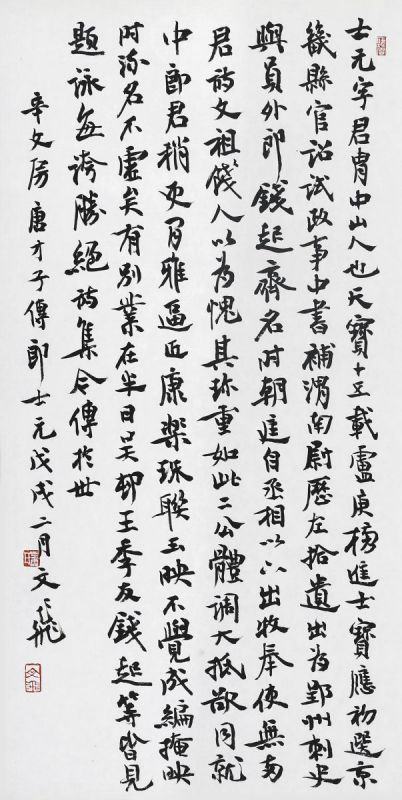 士元字君胄中山人也天寶十五載盧庚榜進士寶應初選京
畿縣官詔試政事中書補渭南尉歷左拾遺出為郢州刺史
與員外郎錢起齊名時朝廷自丞相以下出牧奉使無兩
君詩文祖餞人以為愧其珍重如此二公體調大抵欲同就
中郎君稍更閒雅逼近康樂珠聯玉映不覺成編掩映
時流名不虛矣有別業在半日吳邨王季友錢起等皆見
題詠每誇勝絕詩集今傳於世
辛文房唐才子傳郎士元戊戌二月文飛